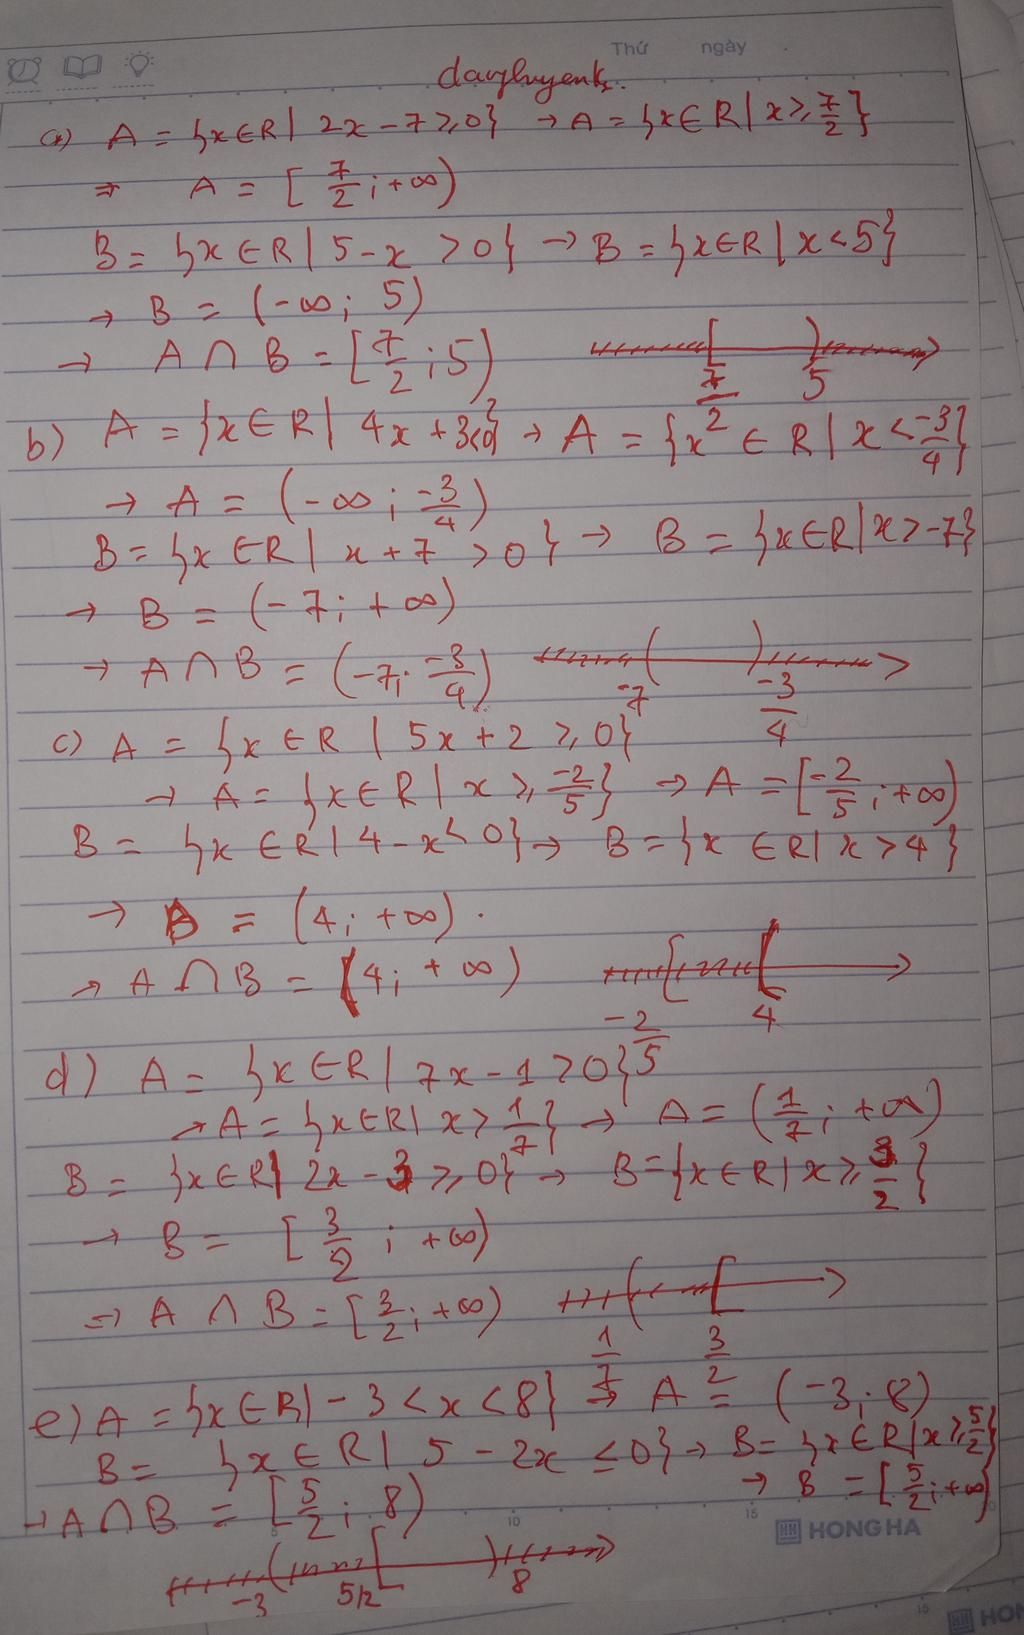 Thứ ngày
a) A = {x ∈ R | 2x - 7 ≥ 0} → A = {x ∈ R | x ≥ 7/2}
⇒ A = [7/2; +∞)
B = {x ∈ R | 5 - x > 0} → B = {x ∈ R | x < 5}
→ B = (-∞; 5)
→ A ∩ B = [7/2; 5)
7/2 5
b) A = {x ∈ R | 4x + 3 < 0} → A = {x² ∈ R | x < -3/4}
→ A = (-∞; -3/4)
B = {x ∈ R | x + 7 > 0} → B = {x ∈ R | x > -7}
→ B = (-7; +∞)
→ A ∩ B = (-7; -3/4)
-7 -3/4
c) A = {x ∈ R | 5x + 2 ≥ 0}
→ A = {x ∈ R | x ≥ -2/5} → A = [-2/5; +∞)
B = {x ∈ R | 4 - x < 0} → B = {x ∈ R | x > 4}
→ B = (4; +∞).
→ A ∩ B = (4; +∞)
-2/5 4
d) A = {x ∈ R | 7x - 1 > 0}
→ A = {x ∈ R | x > 1/7} → A = (1/7; +∞)
B = {x ∈ R | 2x - 3 ≥ 0} → B = {x ∈ R | x ≥ 3/2}
→ B = [3/2; +∞)
→ A ∩ B = [3/2; +∞)
1/7 3/2
e) A = {x ∈ R | -3 < x < 8} → A = (-3; 8)
B = {x ∈ R | 5 - 2x ≤ 0} → B = {x ∈ R | x ≥ 5/2}
→ B = [5/2; +∞)
→ A ∩ B = [5/2; 8)
-3 5/2 8
5 10 15 20
HONG HA
15
HON